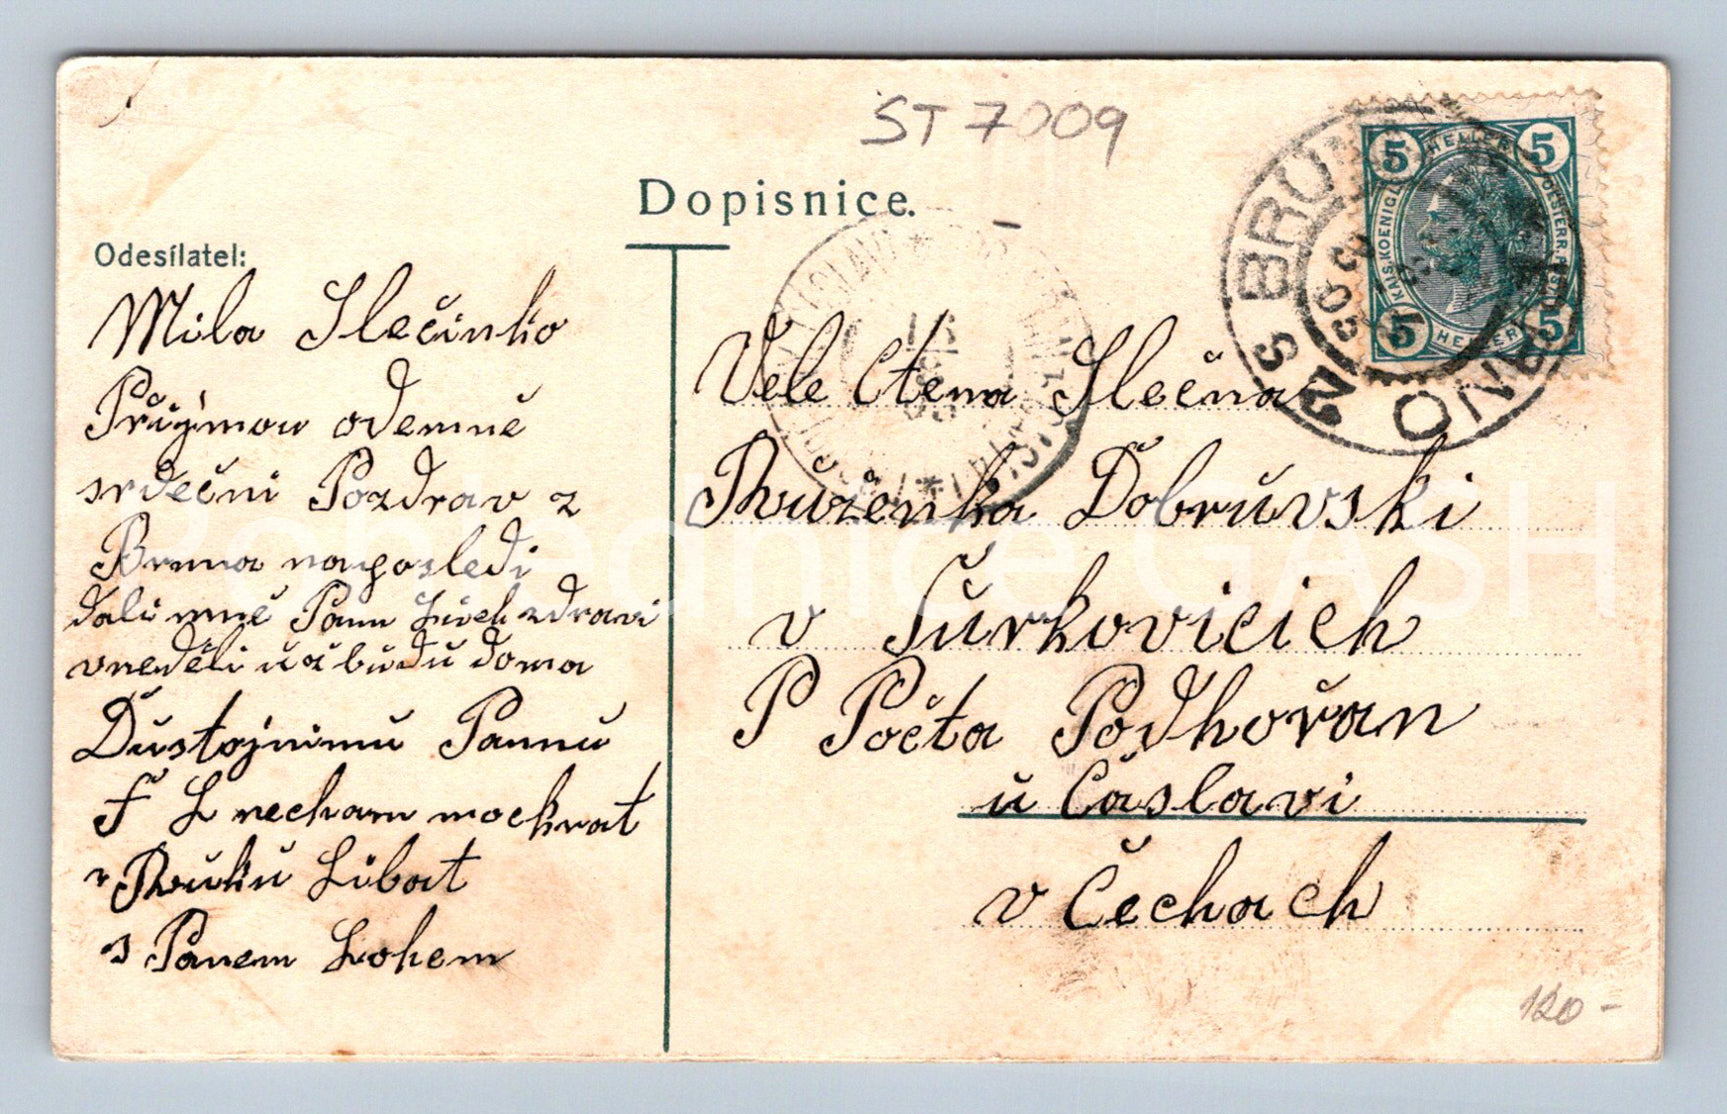 ST 7009
Dopisnice.
Odesílatel:
Mila Slečinko
Přijmou odemně
srdečni Pozdrav z
Brna naposledi
dali mně Pann Buch zdravi
vneděli uš budu doma
Dustojnimu Pannu
F L necham mockrat
Ruku Libat
s Panem Bohem
Vele Ctena Slečna
Ruženka Dobruvski
v Turkovicich
P Počta Podhořan
u Časlavi
v Čechach
BRUNN
BRNO
2
5 HELLER 5
KAIS. KOENIGL. OESTERR. POST
5 HELLER 5
120-